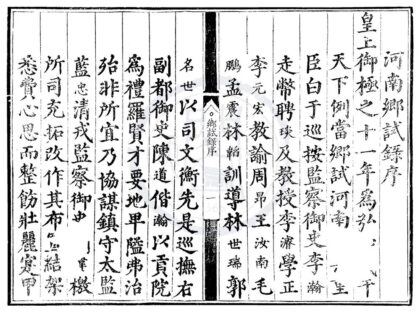 河南鄉試錄序
皇上御極之十一年為弘
天下例當鄉試河南
臣白于巡按監察御史李瀚
走幣聘瑛及教授李濬學正
李元宏教諭周昂王汝南毛
鵬孟震林韜訓導林世瑞郭
鄉試錄序
名世以司文衡先是巡撫右
副都御史陳道偕瀚以貢院
為禮羅賢才要地卑隘弗治
殆非所宜乃協謀鎮守太監
藍忠清戎監察御史
檄
所司充拓改作其布
結架
悉費心思而整飭壯麗寔甲